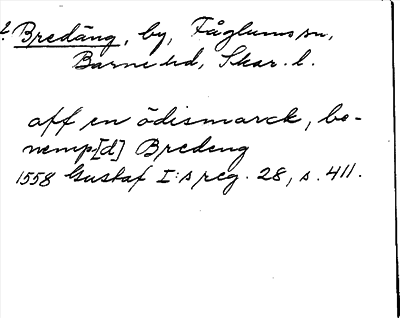 ? Bredäng, by, Fåglums sn,
Barne hd, Skar. l.
aff en ödismarck, be-
nemp[d] Bredeng
1558 Gustaf I:s reg. 28, s. 411.